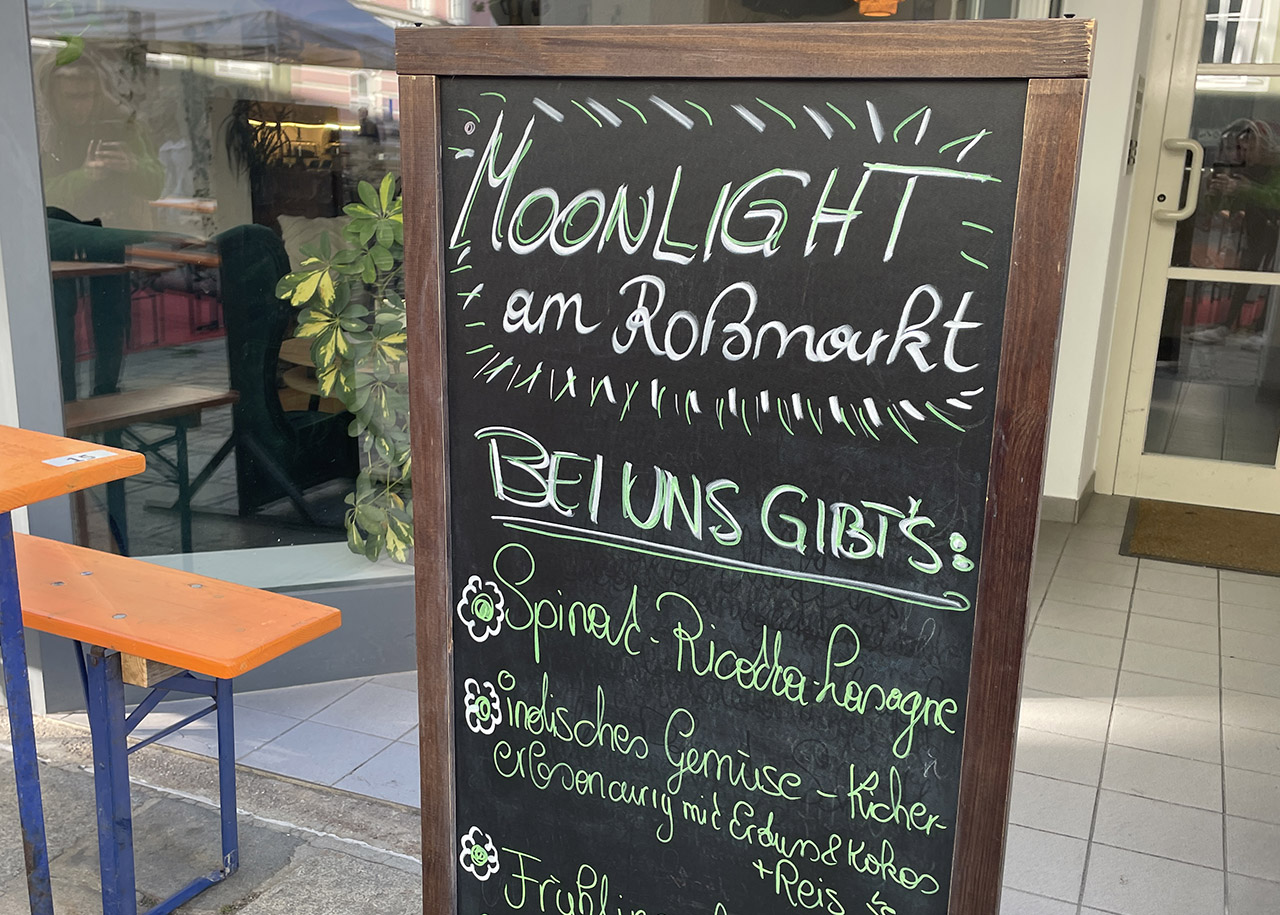 MOONLIGHT
am Roßmarkt
BEI UNS GIBT'S:
Spinat-Ricotta-Lasagne
indisches Gemüse - Kicher-
erbsencurry mit Erdnuss & Kokos
+Reis
15